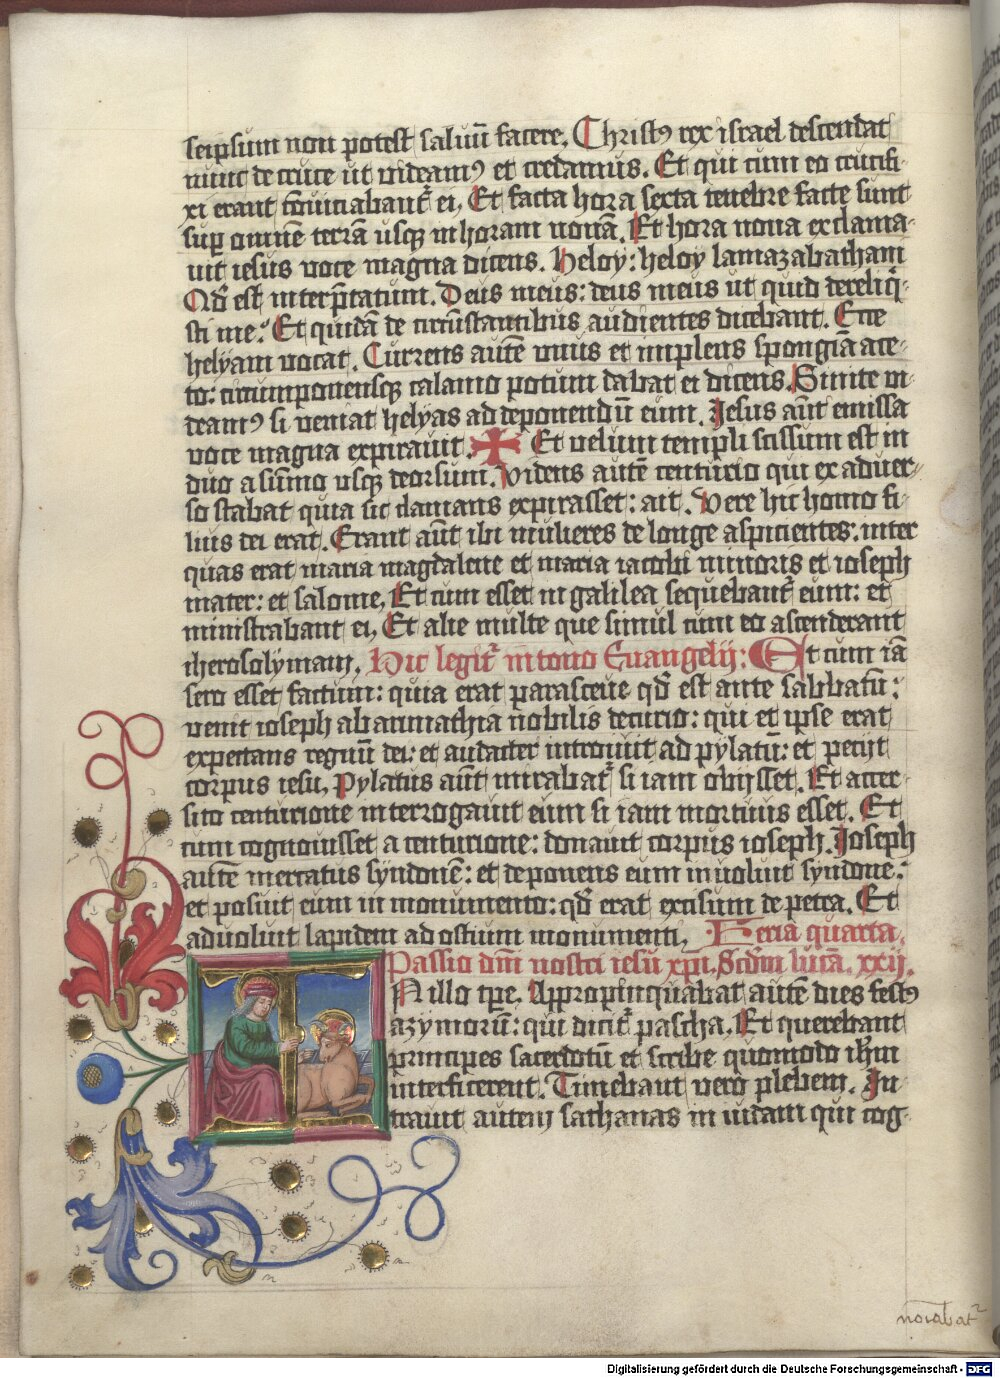 seipsum non potest saluū facere. Christꝰ rex israel descendat
nunc de cruce ut uideamꝰ et credamus. Et qui cum eo crucifi-
xi erant cōuiciabant̄ ei. Et facta hora sexta tenebre facte sunt
sup omnē terrā usqꝫ in horam nonā. Et hora nona exclama-
uit iesus uoce magna dicens. Heloy: heloy lamazabathani
Qd̄ est interp̄tatum. Deus meus: deus meus ut quid dereliq̄-
sti me? Et quidā de circūstantibus audientes dicebant. Ecce
helyam uocat. Currens autē unus et implens spongiā ace-
to: circumponensqꝫ calamo potum dabat ei dicens. Sinite ui-
deamꝰ si ueniat helyas ad deponendū eum. Jesus aūt emissa
uoce magna expirauit. ✠ Et uelum templi scissum est in
duo a sūmo usqꝫ deorsum. Videns autē centurio qui ex aduer-
so stabat quia sic clamans expirasset: ait. Vere hic homo fi-
lius dei erat. Erant aūt ibi mulieres de longe aspicientes: inter
quas erat maria magdalene et maria iacobi minoris et ioseph
mater: et salome. Et cum esset in galilea sequebant̄ eum: et
ministrabant ei. Et alie multe que simul cum eo ascenderant
iherosolymam. Hic legit̄ in tono Euangelij: Et cum iā
sero esset factum: quia erat parasceue qd̄ est ante sabbatū:
uenit ioseph ab arimathia nobilis decurio: qui et ipse erat
expectans regnū dei: et audacter introiuit ad pylatū: et petijt
corpus iesu. Pylatus aūt mirabat̄ si iam obijsset. Et accer-
sito centurione interrogauit eum si iam mortuus esset. Et
cum cognouisset a centurione: donauit corpus ioseph. Joseph
autē mercatus syndonē: et deponens eum inuoluit syndone:
et posuit eum in monumento: qd̄ erat excisum de petra. Et
aduoluit lapidem ad ostium monumenti. Feria quarta.
Passio dn̄i nostri iesu xp̄i. Scdm̄ lucā. xxij.
In illo tp̄e. Appropinquabat autē dies festꝰ
azymorū: qui dicit̄ pascha. Et querebant
principes sacerdotū et scribe quomodo ih̄m
interficerent. Timebant vero plebem. In-
trauit autem sathanas in iudam qui cog-
Digitalisierung gefördert durch die Deutsche Forschungsgemeinschaft - DFG